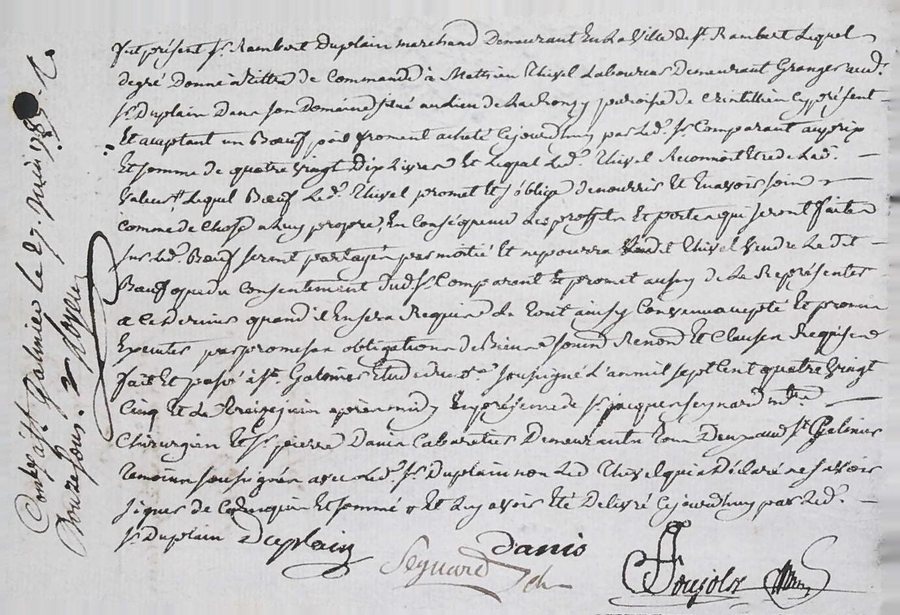 fut présent Sr. Rambert Duplain marchand Demeurant En La Ville de St. Rambert Lequel
degré Donne à tittre de Commande à Mathieu Thivel Laboureur Demeurant Granger audt.
Sr. Duplain Dans Son Domaine Situé au lieu de paroisse de Cy présent
Et acceptant un Bœuf poid froment acheté Cejourdhuy par Led. Sr. Comparant au prix
Et Somme de quatre Vingt Dix Livres Et Lequel Led. Thivel Reconnoit Etre de Lad.
Valeur Lequel Bœuf Led. Thivel promet Et S'oblige de nourrir Et En avoir Soin
Comme de Chose a Luy propre, En Conséquence Les proffits Et pertes qui Seront faites
Sur Led. Bœuf Seront partagés par moitié Et ne pourra Ledit Thivel Vendre Le dit
Bœuf que du Consentement Dud. Sr. Comparant Et promet aussy de Le Représenter
a Ce dernier quand il En Sera Requis Le tout ainsy Convenu accepté Et promis
Executer par promesses obligations de Biens Renond. Et Clauses Requises
fait Et passé à St. Galmier Etude du Soussigné L'an mil Sept Cent quatre Vingt
Cinq Et Le Treize juin après midy En présence de Sr. jacques Seynard me.
Chirurgien Et Sr. pierre Danis Cabaretier Demeurants Tous Deux aud. St. Galmier
Temoins Soussignés avec Led. Sr. Duplain non Led. Thivel qui a Déclaré ne Savoir
Signer de Ce Enquis Et Sommé Et Luy avoir Eté Delivré Cejourdhuy par Led.
Sr. Duplain Duplain
Danis
Seynard
Poujols
Conté à St. Galmier le 27. juin 1785.
Douze Sous.